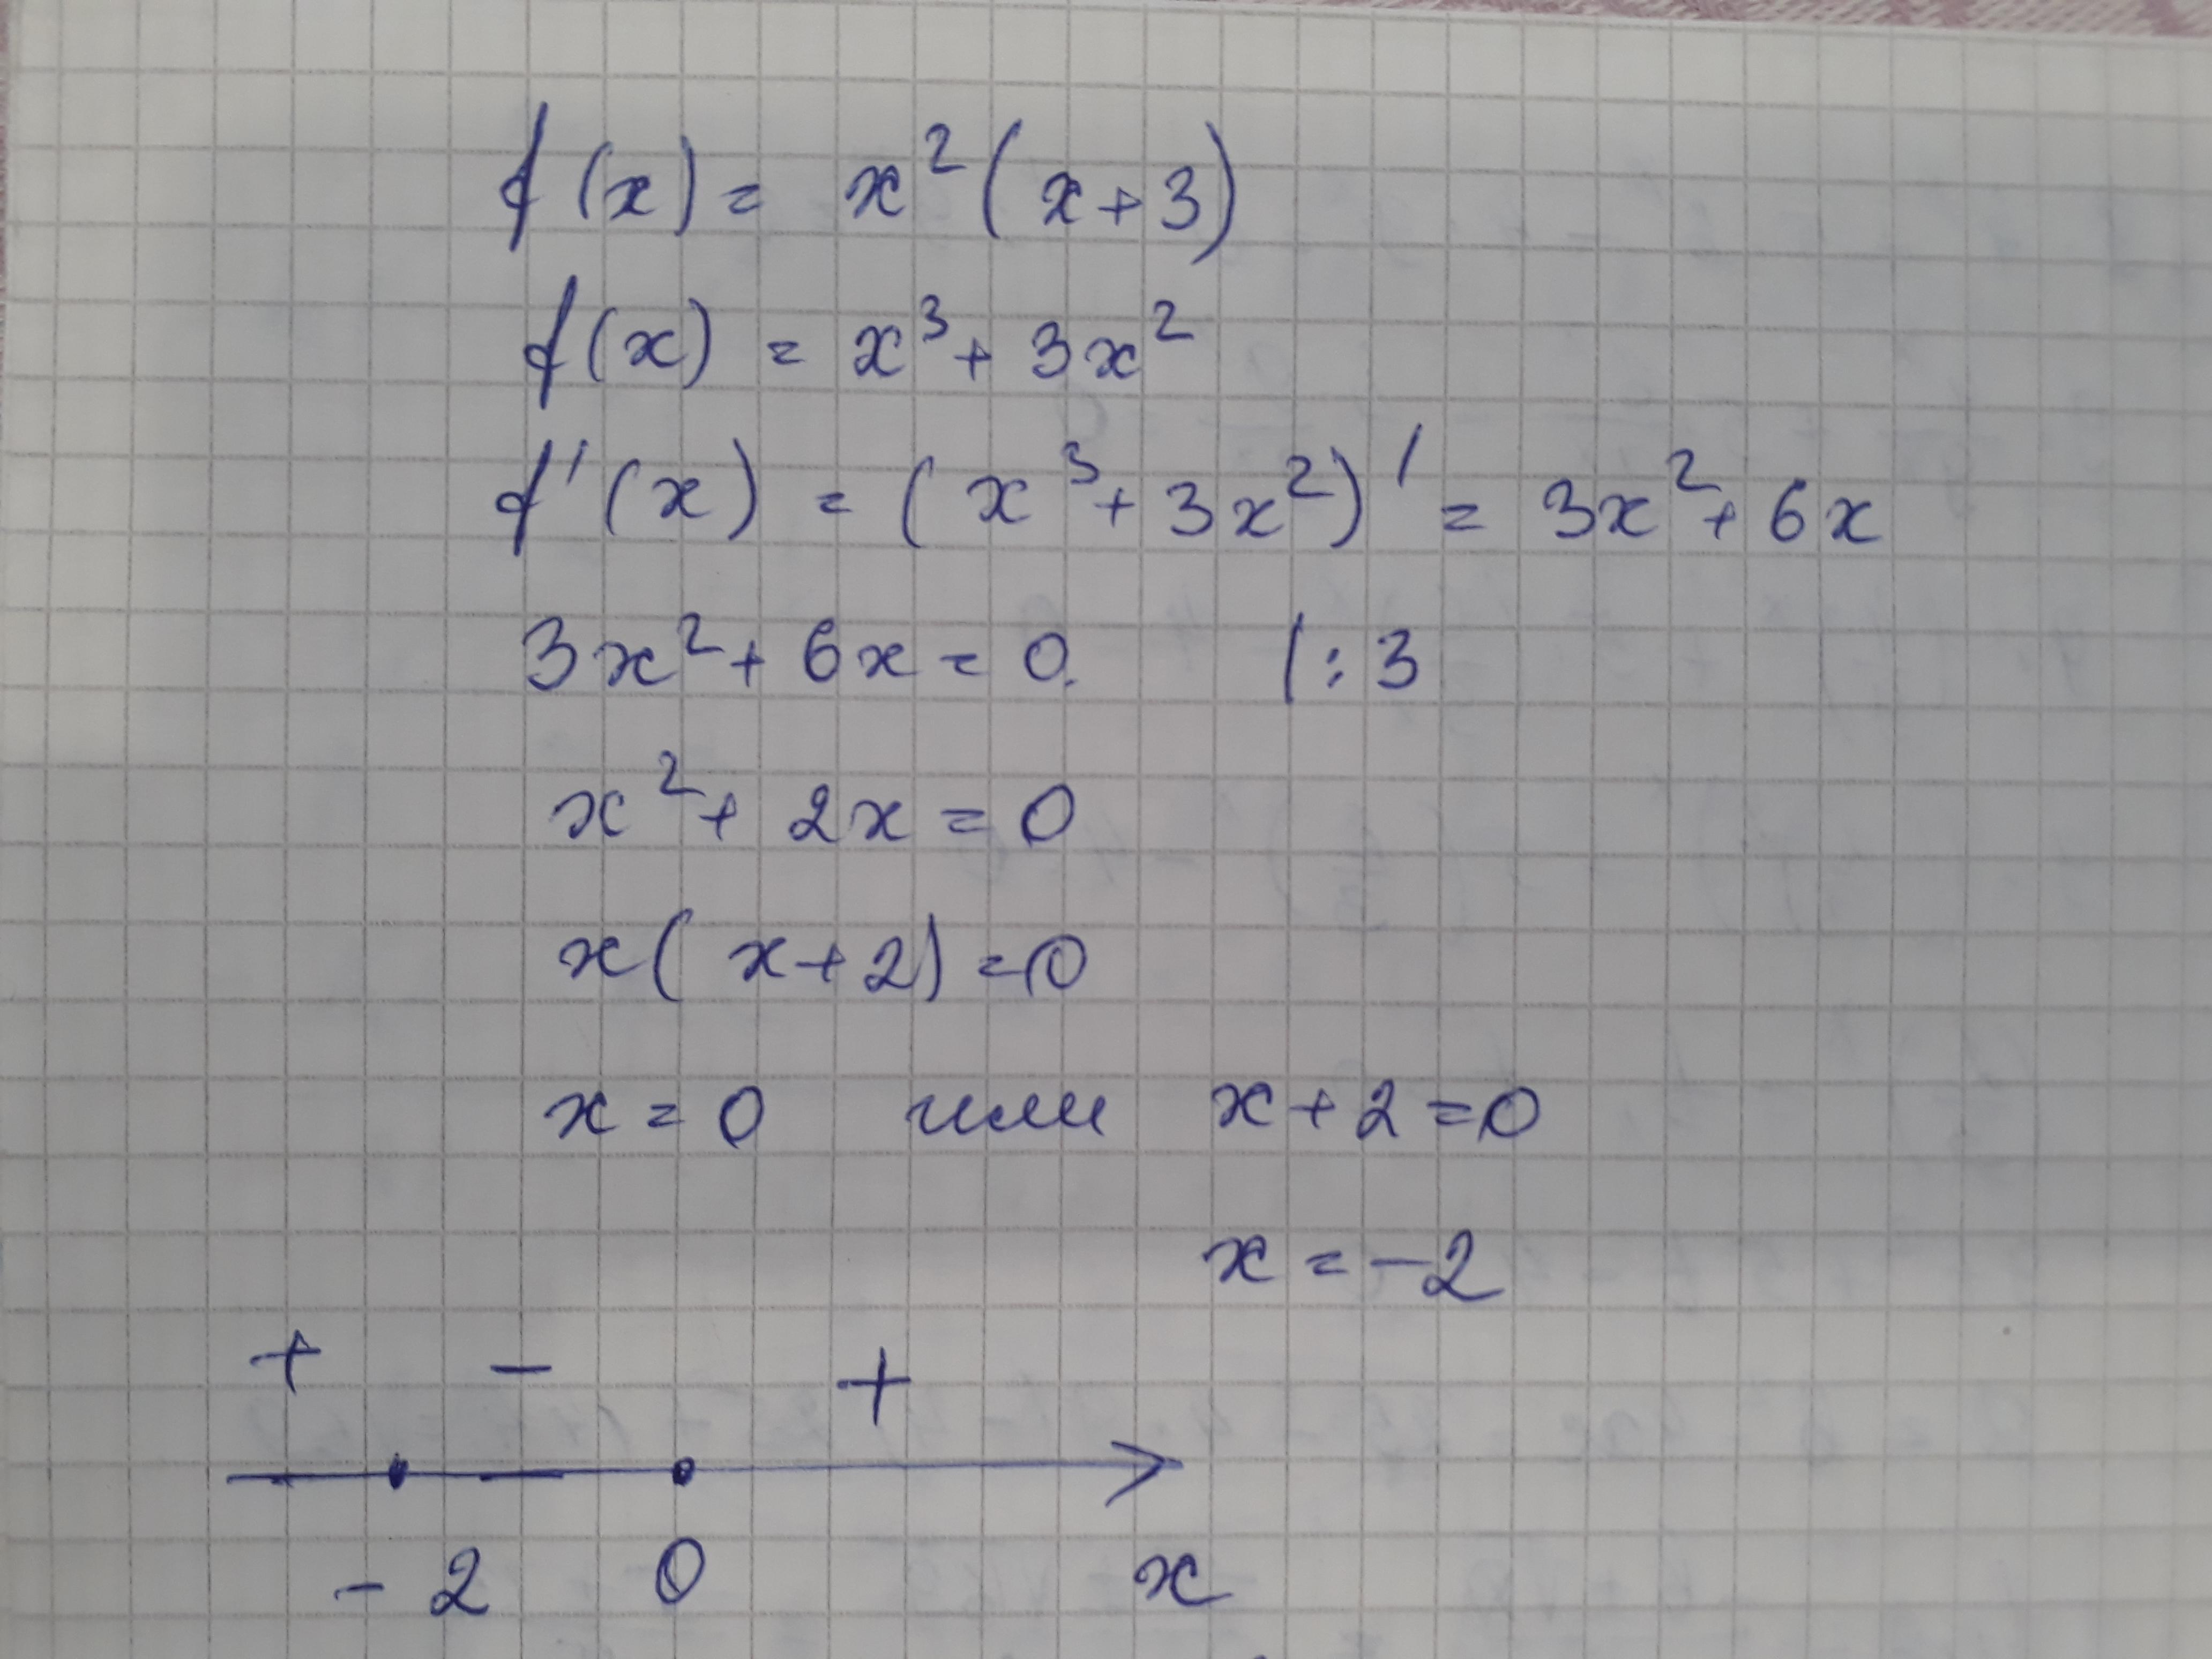 f(x) = x²(x+3)
f(x) = x³ + 3x²
f'(x) = (x³ + 3x²)' = 3x² + 6x
3x² + 6x = 0. | : 3
x² + 2x = 0
x(x+2) = 0
x = 0 или x + 2 = 0
x = -2
+ - +
-2 0 x